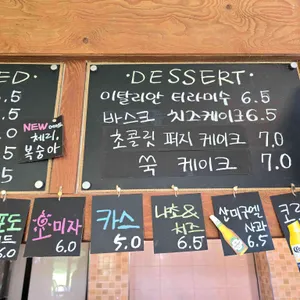 ED.
.5
.5
.0
.5
NEW
체리
복숭아
·DESSERT·
이탈리안 티라미수 6.5
바스크 치즈케이크 6.5
초콜릿 퍼지 케이크 7.0
쑥 케이크 7.0
포도
6.0
오미자
6.0
카스
5.0
나쵸&
치즈
6.5
산미구엘
사과
6.5
코로